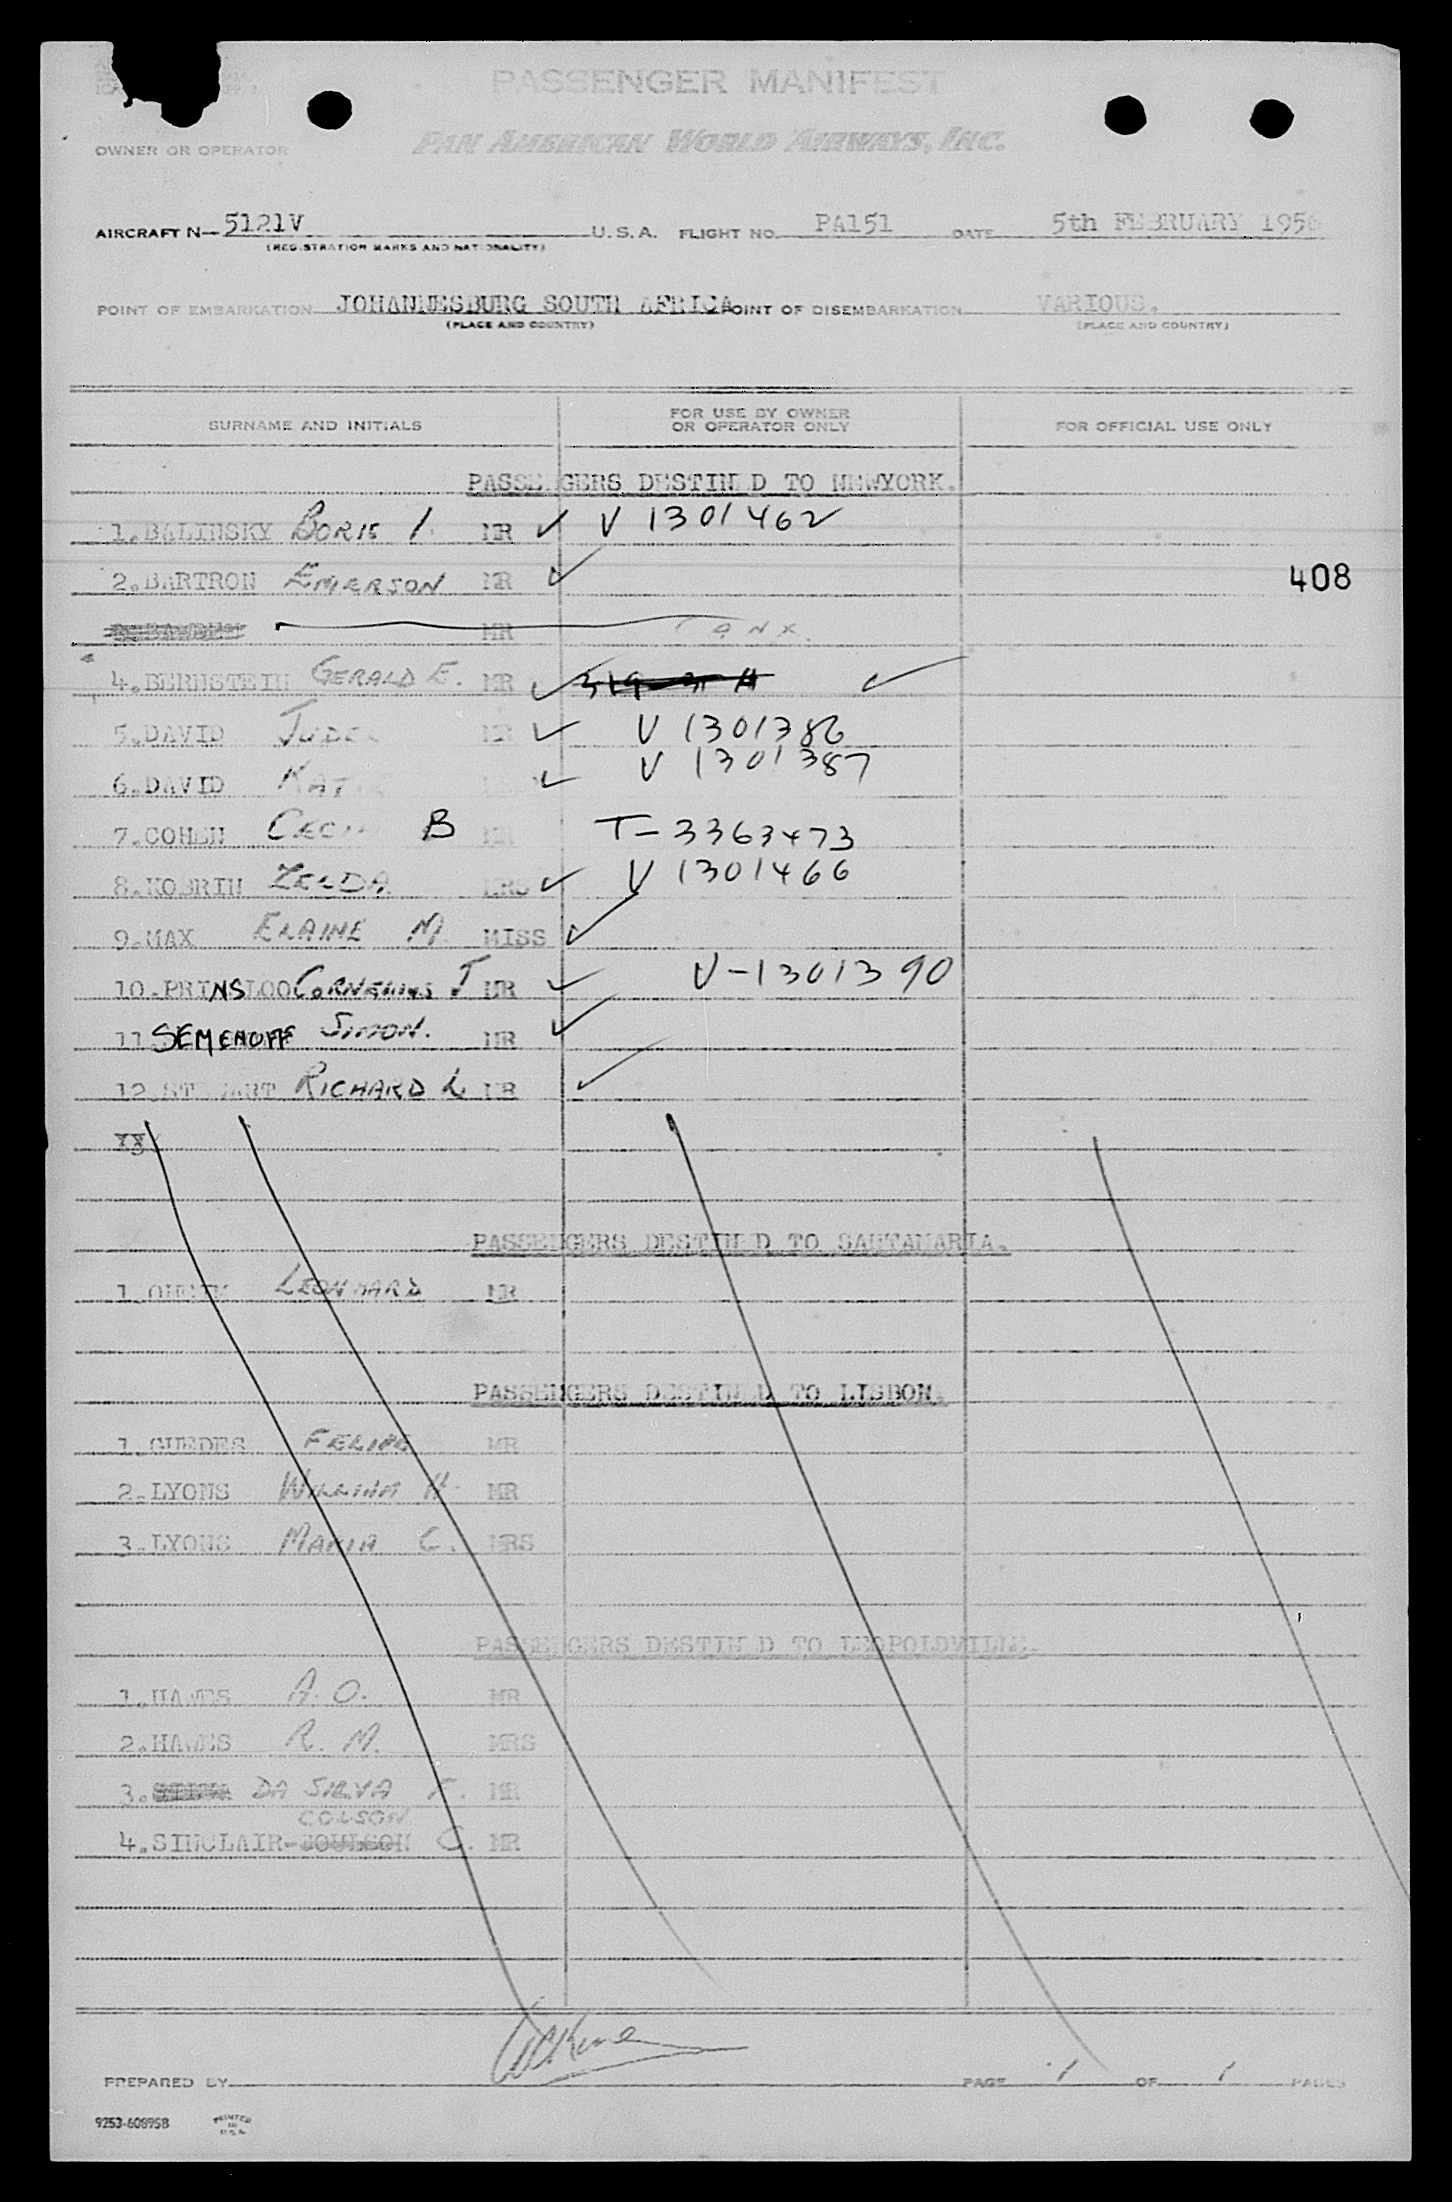 PASSENGER MANIFEST
OWNER OR OPERATOR PAN AMERICAN WORLD AIRWAYS, INC.
AIRCRAFT N- 5121V U.S.A. FLIGHT NO. PA151 DATE 5th FEBRUARY 1956
(REGISTRATION MARKS AND NATIONALITY)
POINT OF EMBARKATION JOHANNESBURG SOUTH AFRICA POINT OF DISEMBARKATION VARIOUS.
(PLACE AND COUNTRY) (PLACE AND COUNTRY)
SURNAME AND INITIALS FOR USE BY OWNER OR OPERATOR ONLY FOR OFFICIAL USE ONLY
PASSENGERS DESTINED TO NEWYORK.
1.BALINSKY BORIS I. MR ✓ V 1301462
2.BARTRON EMERSON MR ✓ 408
MR CANX.
4.BERNSTEIN GERALD E. MR ✓ ✓
5.DAVID JUDE MR ✓ V 1301386
6.DAVID KAT ✓ V 1301387
7.COHEN CECIL B MR T-3363473
8.KOBRIN ZELDA MRS ✓ V 1301466
9.MAX ELAINE M MISS ✓
10.PRINSLOO CORNELIUS J MR ✓ V-1301390
11 SEMENOFF SIMON. MR ✓
12.STEWART RICHARD L MR ✓
PASSENGERS DESTINED TO SANTAMARIA.
1. LEONHARD MR
PASSENGERS DESTINED TO LISBON.
1.GUEDES FELIPE MR
2.LYONS WILLIAM H. MR
3.LYONS MARIA C. MRS
PASSENGERS DESTINED TO LEOPOLDVILLE.
1.HAWES A.O. MR
2.HAWES R.M. MRS
3. DA SILVA F. MR
COLSON
4.SINCLAIR- C. MR
PREPARED BY PAGE 1 OF 1 PAGES
9253-608958 PRINTED IN U.S.A.